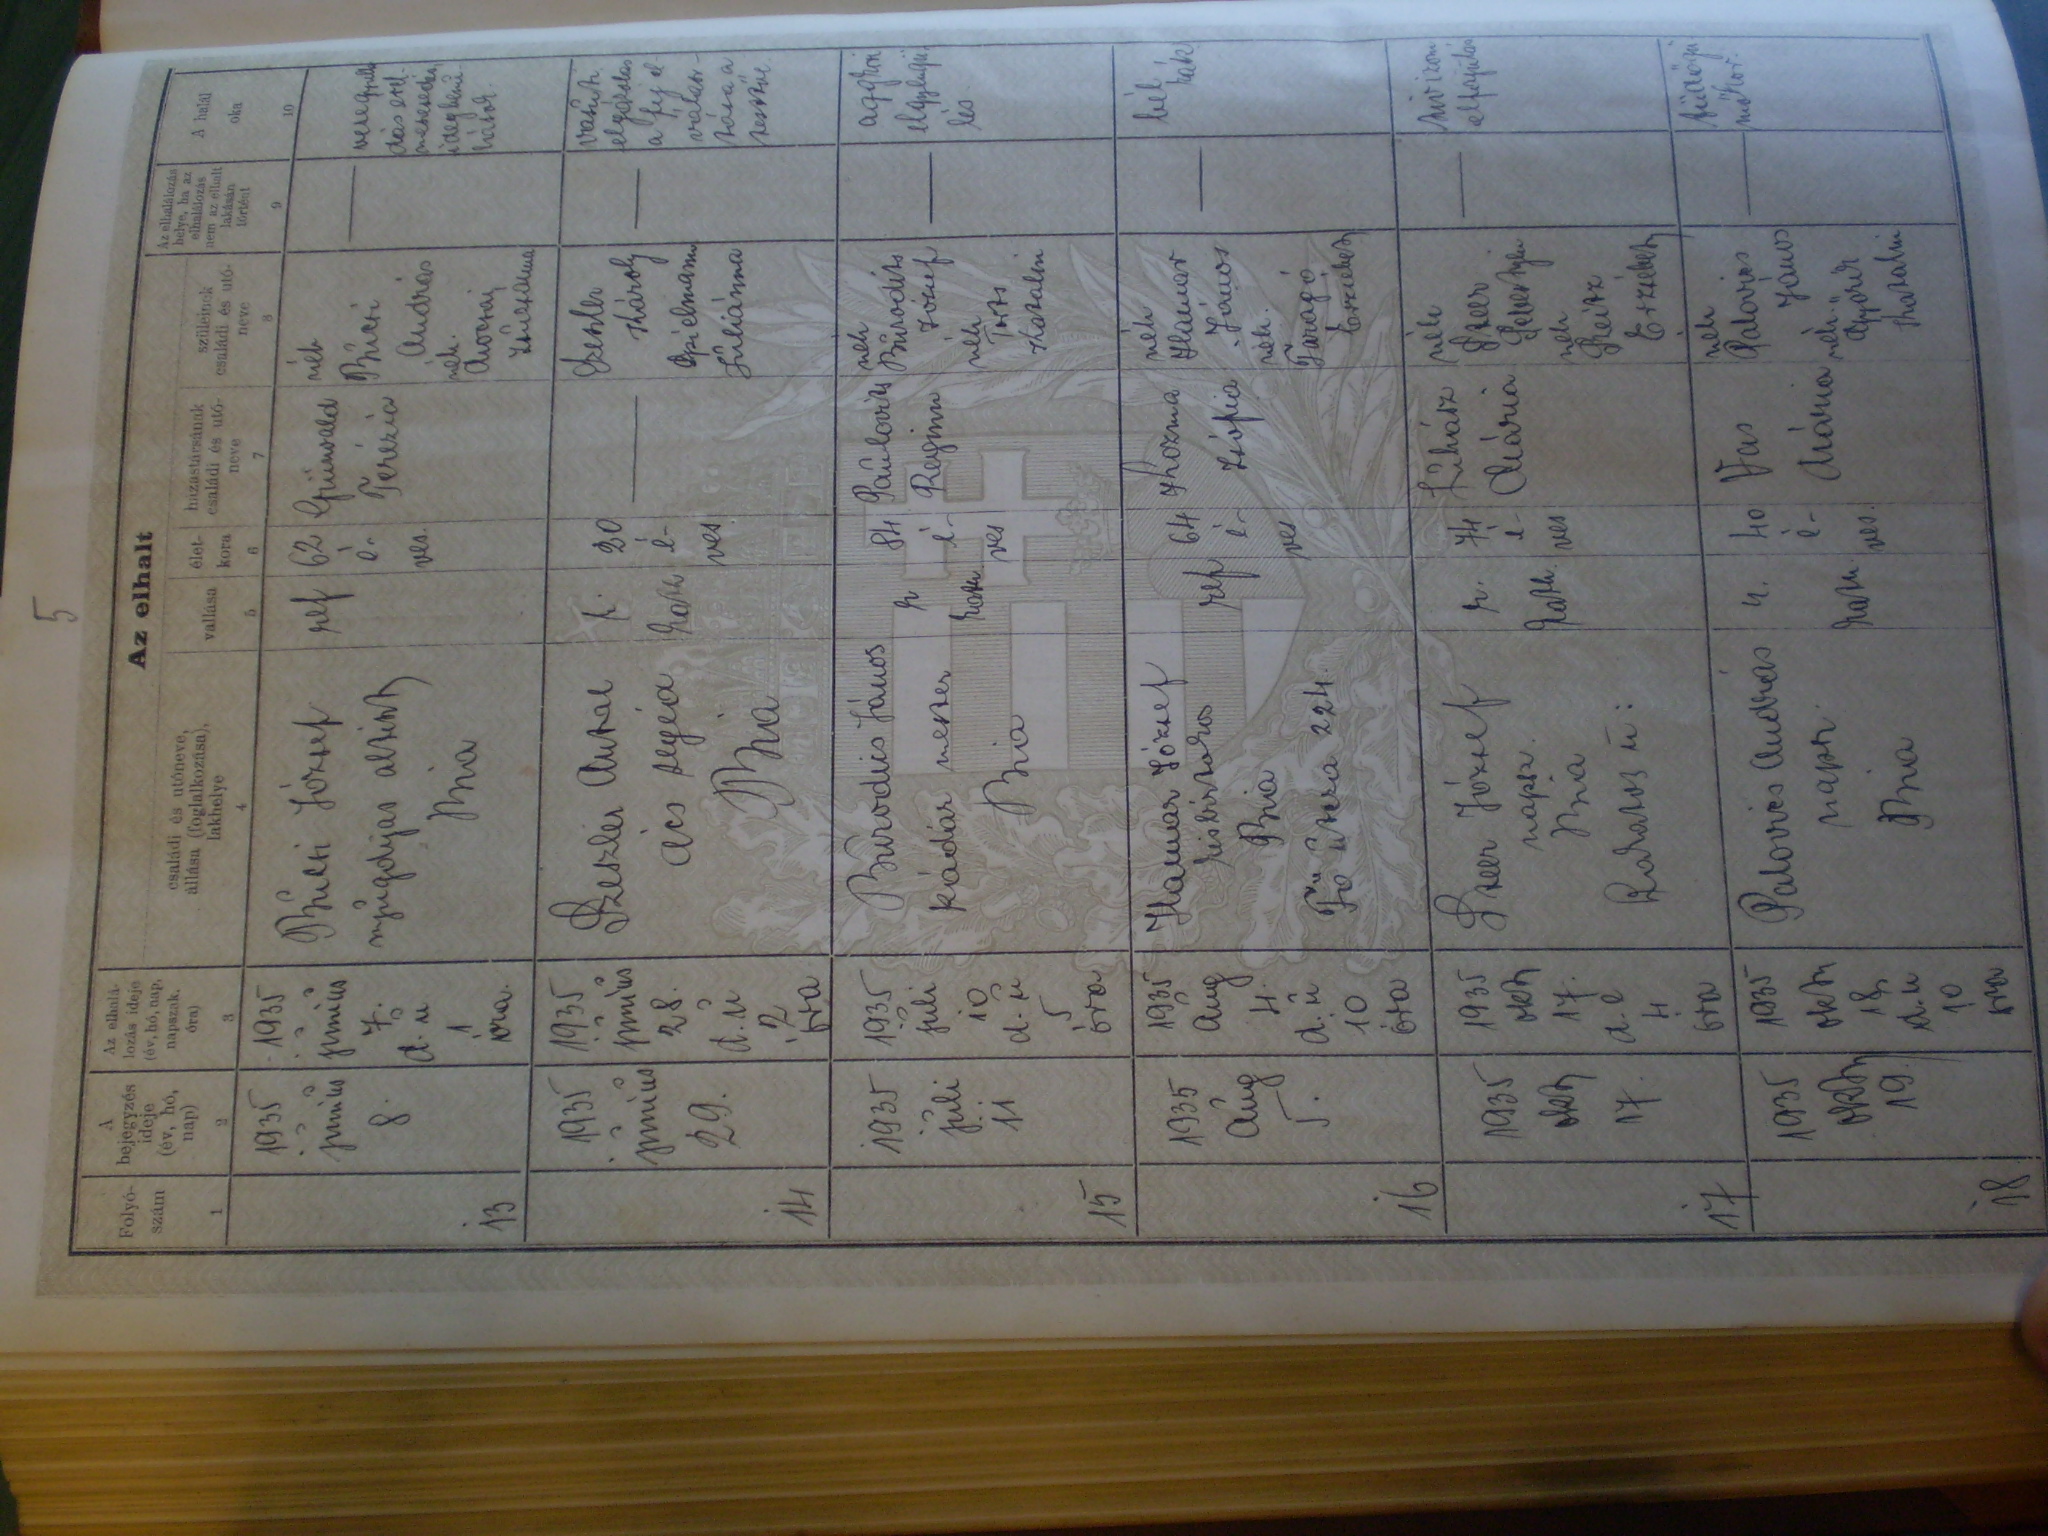 5
Az elhalt
Folyó-
szám
A
bejegyzés
ideje
(év, hó,
nap)
Az elhalá-
lozás ideje
(év, hó, nap,
napszak,
óra)
családi és utóneve,
állása (foglalkozása),
lakhelye
vallása
élet-
kora
házastársának
családi és utó-
neve
szüleinek
családi és utó-
neve
Az elhalálozás
helye, ha az
elhalálozás
nem az elhalt
lakásán
történt
A halál
oka
1
2
3
4
5
6
7
8
9
10
13
1935
június
8.
1935
június
7.
d. u
1
óra.
József
nyugdijas altiszt
Bia
ref
62
é-
ves.
Grünwald
Terézia
néh
András
néh.
14
1935
június
29.
1935
június
28.
d. u
2
óra
Szeszler Antal
ács segéd
Bia
r.
kath
20
é-
ves
Szeszler
Károly
Spielmann
Juliánna
15
1935
júli
11
1935
júli
10
d. u
5
óra
János
kádár mester
Bia
r
kath
84
é-
ves
Regina
néh
József
néh
Katalin
aggkori
elgyengü
lés
16
1935
Aug
5.
1935
Aug
4.
d. u
10
óra
Hamar József
kisbirtokos
Bia
Fő utca 224.
ref
64
é-
ves
Kozma
Zsófia
néh
Hamar
János
néh.
Faragó
Erzsébet
bél
rák
17
1935
okt
17.
1935
okt
17.
d. e
4
óra
József
napsz.
Bia
r.
kath.
74
é-
ves
Juhász
Mária
néh
néh
Reitz
Erzsébet
18.
1935
okt
19.
1935
okt
18
d. u
10
óra
Palovics András
napsz.
Bia
r.
kath.
40
é-
ves.
Vas
Mária
néh
Palovics
János
néh.
Katalin